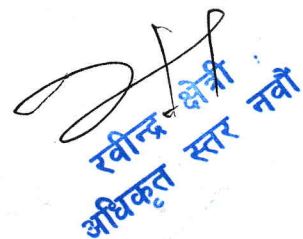 रवीन्द्र क्षेत्री
अधिकृत स्तर नवौं